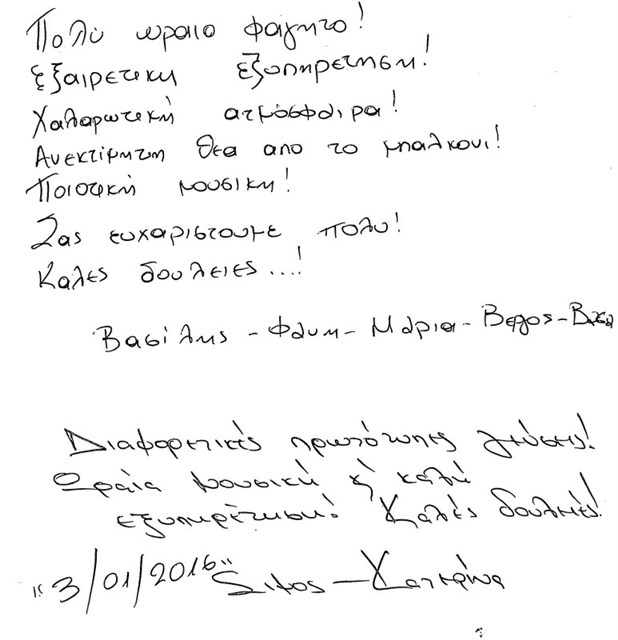 Πολυ ωραιο φαγητο!
εξαιρετικη εξυπηρετηση!
Χαλαρωτική ατμόσφαιρα!
Ανεκτίμητη θεα απο το μπαλκονι!
Ποιοτική μουσικη!
Σας ευχαριστουμε πολυ!
Καλες δουλειες...!
Βασίλης - Φανη - Μάρια -
Διαφορετικές πρωτότυπες γεύσεις!
Ωραία μουσική & καλή
εξυπηρέτηση! Καλές δουλειές!
"3/01/2016" - Κατερίνα